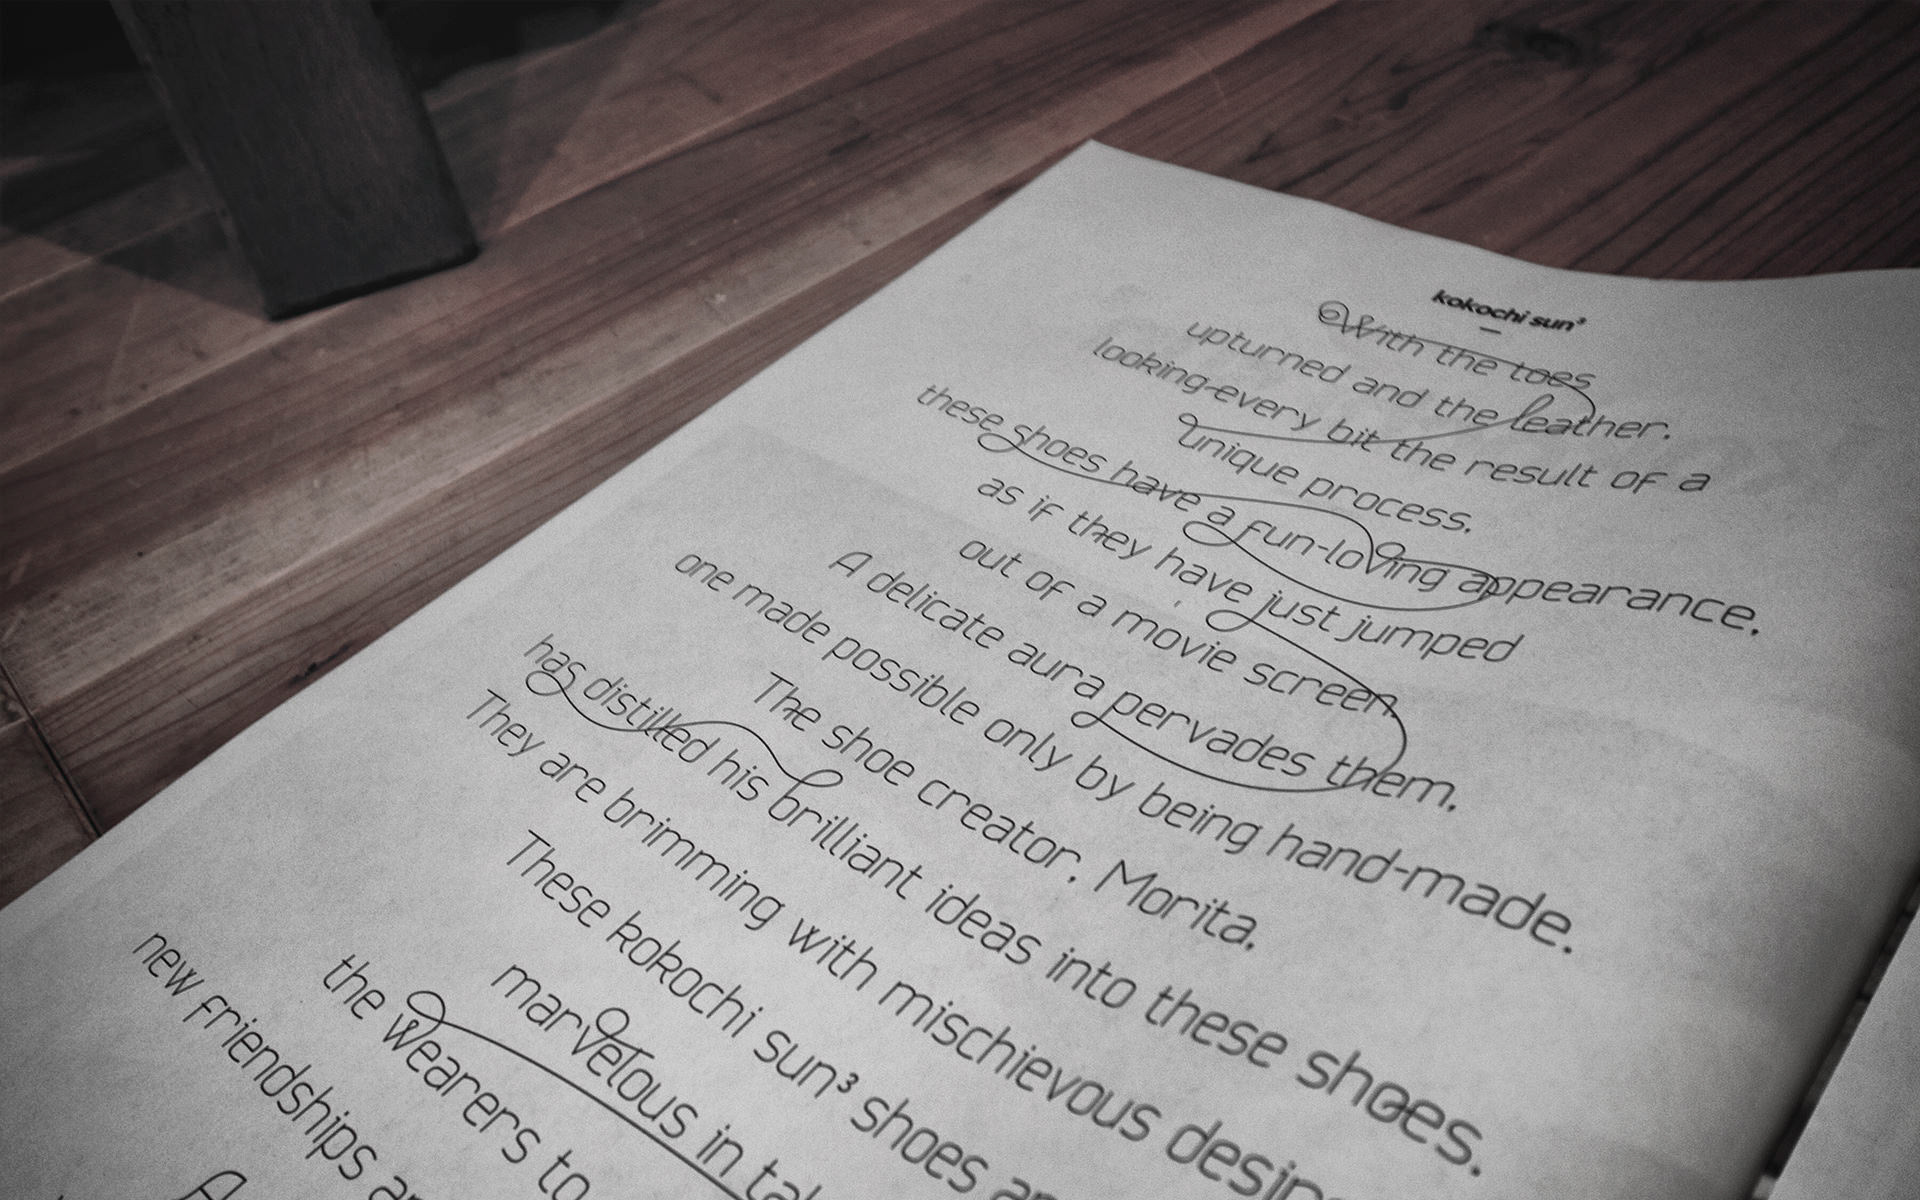 kokochi sun³
With the toes
upturned and the leather.
looking-every bit the result of a
unique process.
these shoes have a fun-loving appearance.
as if they have just jumped
out of a movie screen.
A delicate aura pervades them.
one made possible only by being hand-made.
The shoe creator, Morita.
has distilled his brilliant ideas into these shoes.
They are brimming with mischievous
These kokochi sun³ shoes
marvelous in
the wearers to
new friendships
A